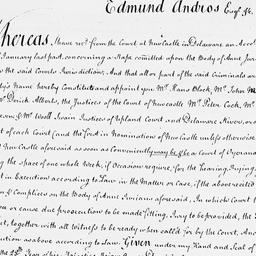 Edmund Andros Esqr. &c.
Whereas I have recd. from the Court of NewCastle in Delaware an Acco
January last past, concerning a Rape comitted upon the Body of Ann
the said Courts Jurisdiction; And that all or part of the said Criminals are
ty's Name hereby Constitute and appoint you Mr. Hans Block, Mr. John M
Derick Alberts, the Justices of the Court of Newcastle Mr. Peter Cock, Mr.
rem; & Mr. Woolle Swain Justices of Upland Court and Delaware River, or a
t of each Court (and the first in Nomination of Newcastle unless otherwise
NewCastle aforesaid as soon as Conveniently may be for a Court of Oyer and
by the space of one whole Week, if Occasion require, for the Hearing, Trying,
t in Execution according to Law in the Matter or Case, if the above recited
& Complices on the Body of Ann aforesaid, In which Court t
ea or cause due prosecution to be made sitting, Jury to be provided, the
rt, together with all Witness to be ready when called for by the Court, And
ution as above according to Law. Given under my Hand and Seal of
the 28th Year of his Majesties